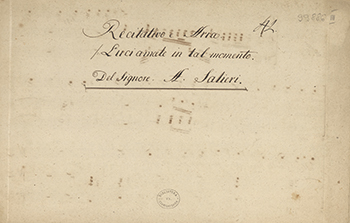 Recitativo e Aria
Luci amate in tal momento.
Del Signore A. Salieri.